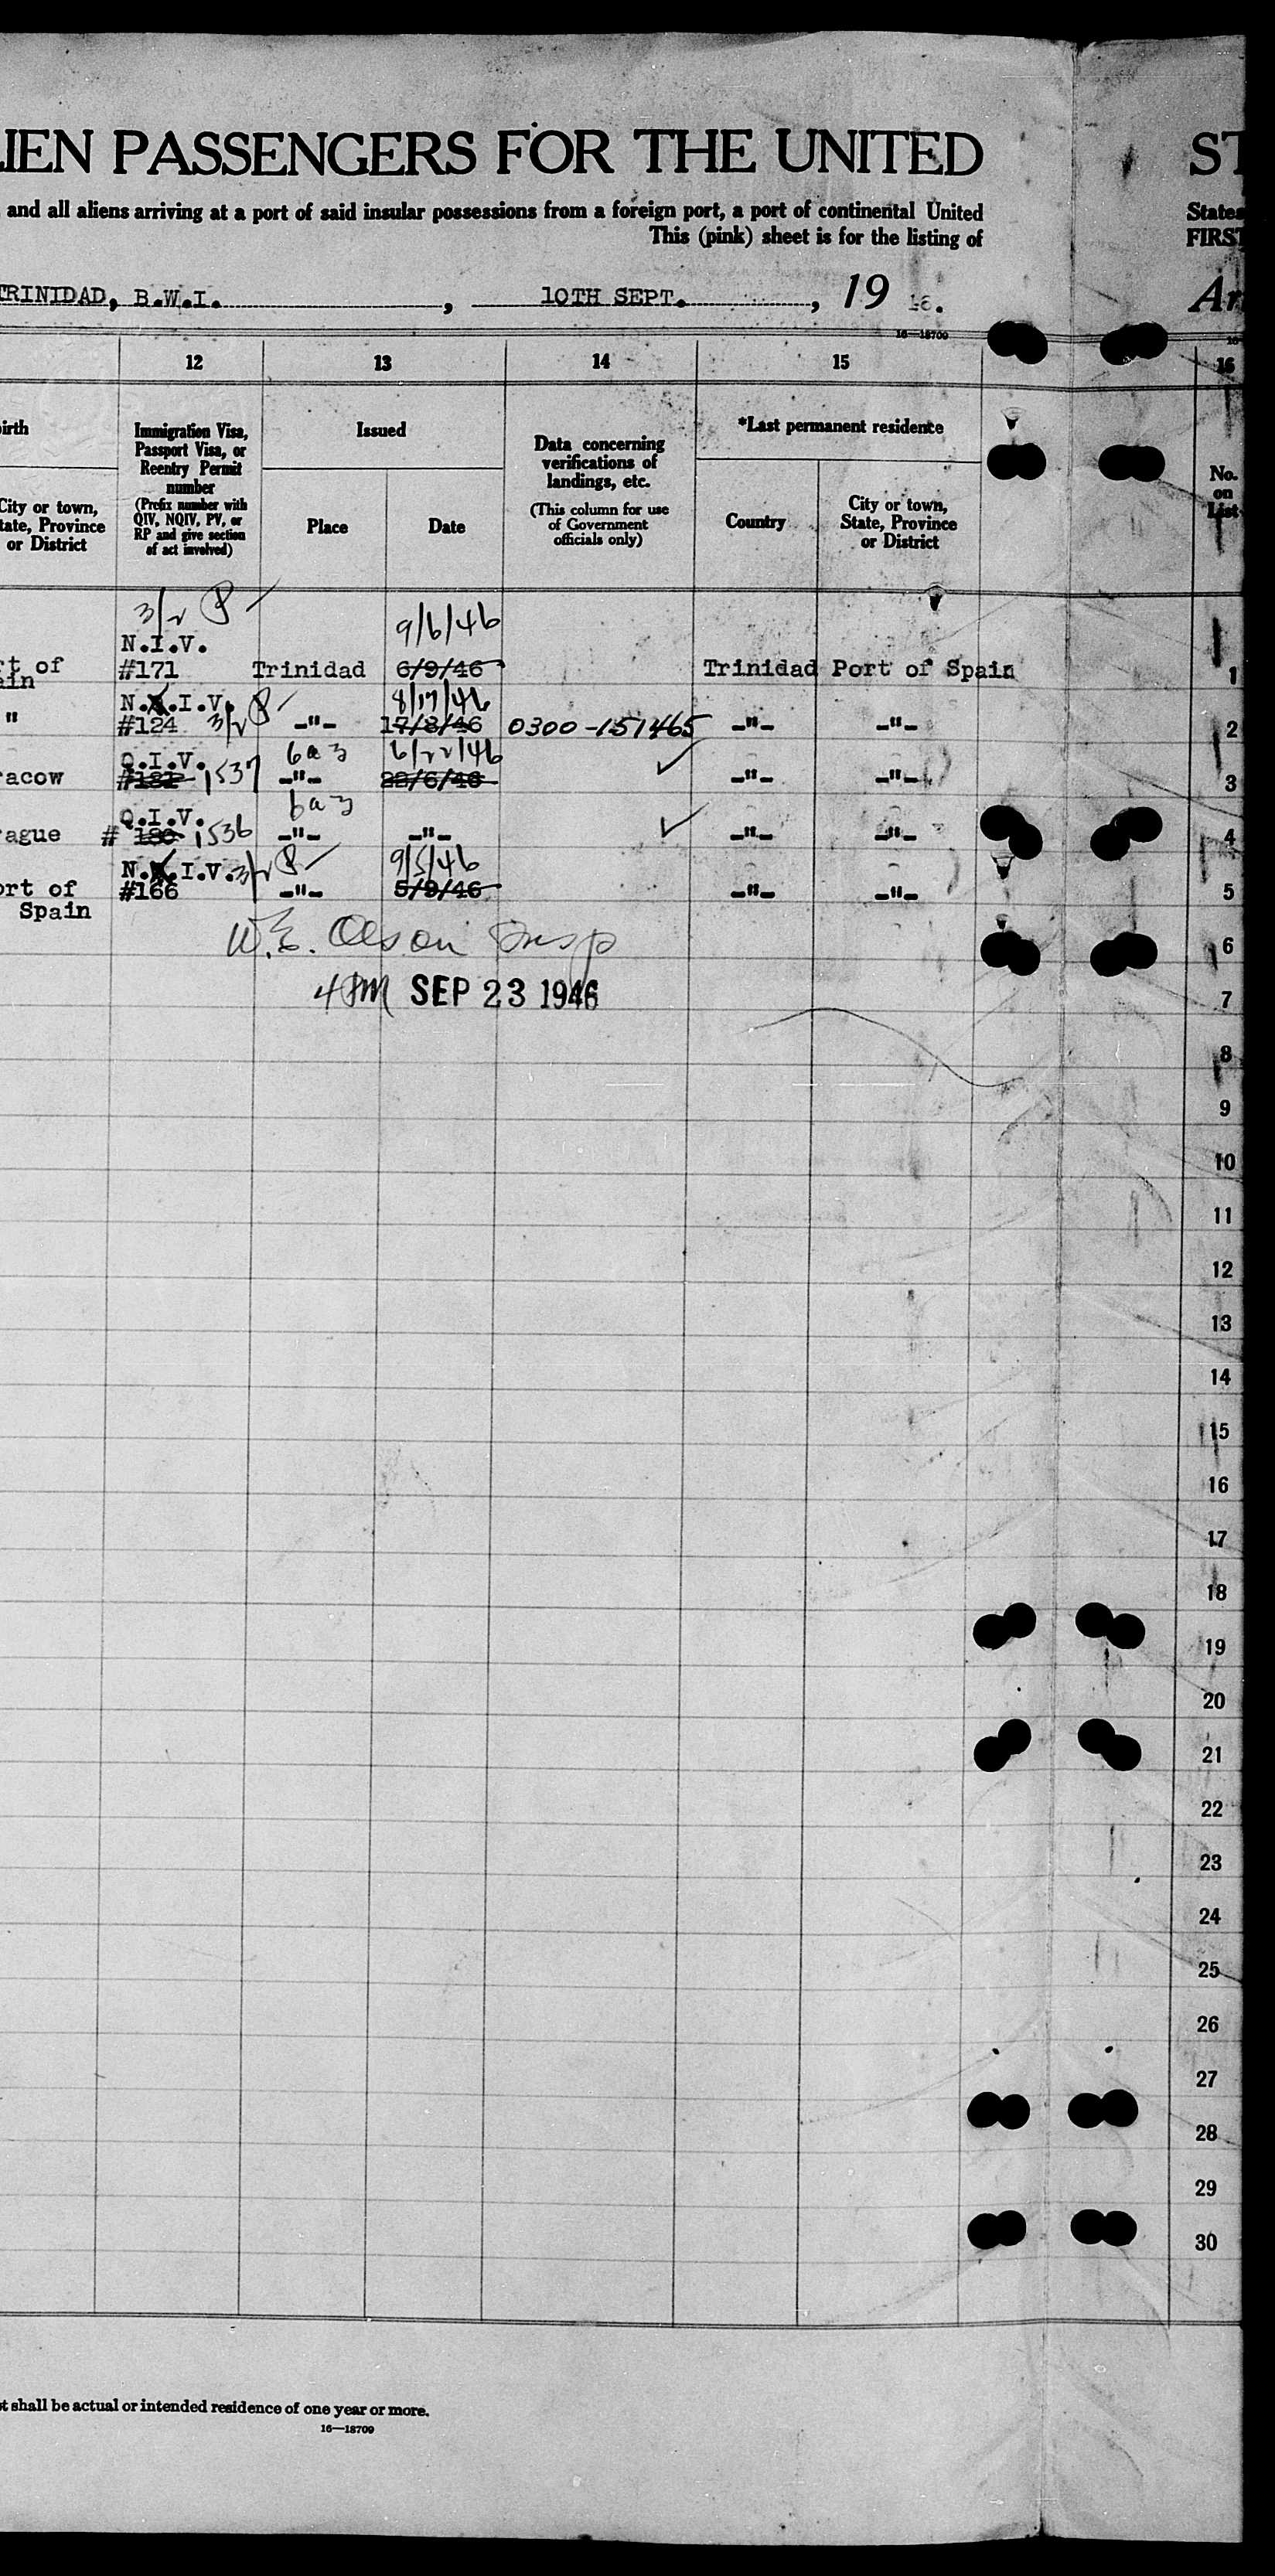 LIEN PASSENGERS FOR THE UNITED ST
and all aliens arriving at a port of said insular possessions from a foreign port, a port of continental United States
This (pink) sheet is for the listing of FIRST
TRINIDAD, B.W.I. , 10TH SEPT. , 19 46. Ar
16—18709
12 13 14 15 16
birth
City or town, State, Province or District
Immigration Visa, Passport Visa, or Reentry Permit number
(Prefix number with QIV, NQIV, PV, or RP and give section of act involved)
Issued
Place
Date
Data concerning verifications of landings, etc.
(This column for use of Government officials only)
*Last permanent residence
Country
City or town, State, Province or District
No. on List
3/2 P 9/6/46
N.I.V.
rt of #171 Trinidad 6/9/46 Trinidad Port of Spain 1
ain
N.I.V. 8/17/46
" #124 3/2 P -"- 17/8/46 0300-151465 -"- -"- 2
Q.I.V. 6a3 6/22/46
acow #181 1537 -"- 22/6/46 ✓ -"- -"- 3
Q.I.V. 6a3
ague # 180 1536 -"- -"- ✓ -"- -"- 4
N.I.V. 3/2 P 9/5/46
ort of #166 -"- 5/9/46 -"- -"- 5
Spain
W.E. Olson Insp 6
4 PM SEP 23 1946 7
8
9
10
11
12
13
14
15
16
17
18
19
20
21
22
23
24
25
26
27
28
29
30
t shall be actual or intended residence of one year or more.
16—18709